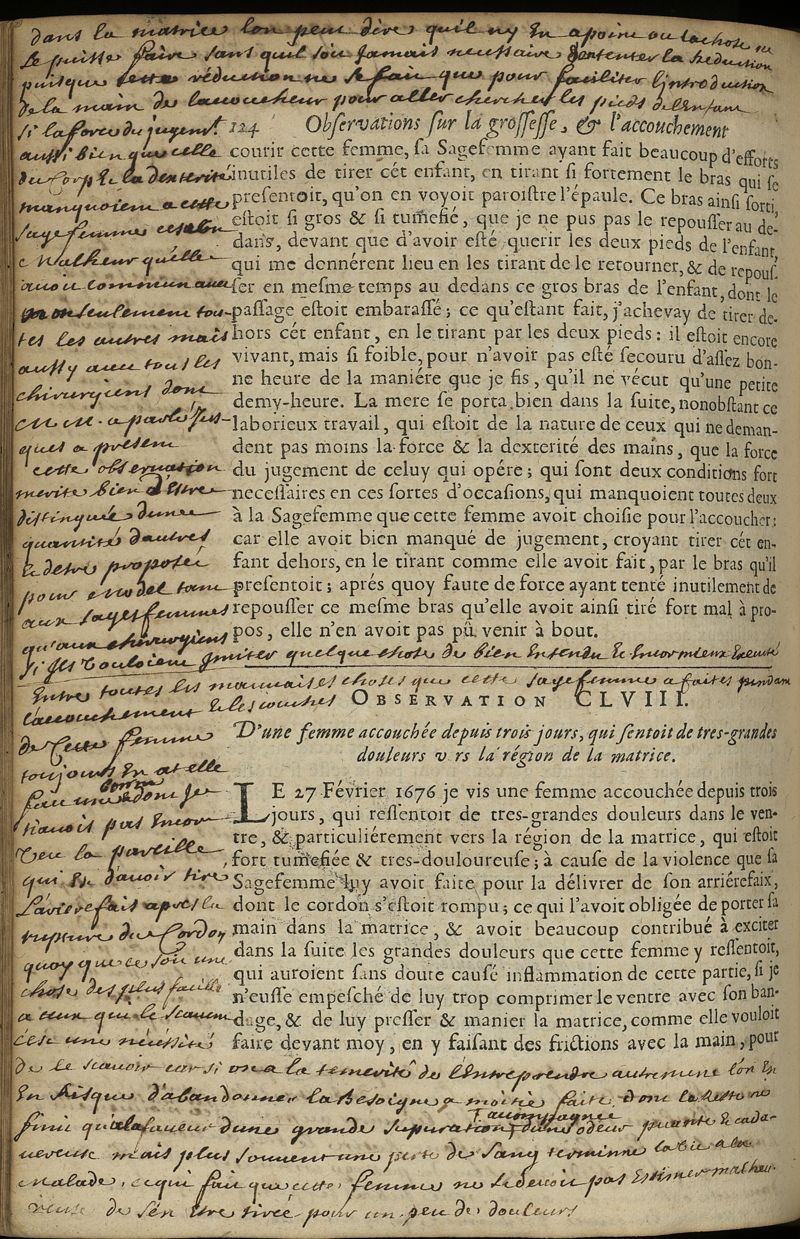 dans la matrice lon peut dire quil ny en a point ou la chose ne
se puisse faire sans quil soit jamais necessaire dententer la Reduction
puisque cette réduction ne se fait que pour faciliter lintroduction
de la main de laccoucheur pour aller chercher les pieds de lenfant
124 Observations sur la grossesse, & l'accouchement
courir cette femme, sa Sagefemme ayant fait beaucoup d'efforts
inutiles de tirer cét enfant, en tirant si fortement le bras qui se
presentoit, qu'on en voyoit paroistre l'épaule. Ce bras ainsi sorti
estoit si gros & si tumefié, que je ne pus pas le repousser au de-
dans, devant que d'avoir esté querir les deux pieds de l'enfant,
qui me dennérent lieu en les tirant de le retourner, & de repous-
ser en mesme temps au dedans ce gros bras de l'enfant, dont le
passage estoit embarassé; ce qu'estant fait, j'achevay de tirer de-
hors cét enfant, en le tirant par les deux pieds: il estoit encore
vivant, mais si foible, pour n'avoir pas esté secouru d'assez bon-
ne heure de la maniére que je fis, qu'il ne vécut qu'une petite
demy-heure. La mere se porta bien dans la suite, nonobstant ce
laborieux travail, qui estoit de la nature de ceux qui ne deman-
dent pas moins la force & la dexterité des mains, que la force
du jugement de celuy qui opére; qui sont deux conditions fort
necessaires en ces sortes d'occasions, qui manquoient toutes deux
à la Sagefemme que cette femme avoit choisie pour l'accoucher;
car elle avoit bien manqué de jugement, croyant tirer cét en-
fant dehors, en le tirant comme elle avoit fait, par le bras qu'il
presentoit; aprés quoy faute de force ayant tenté inutilement de
repousser ce mesme bras qu'elle avoit ainsi tiré fort mal à pro-
pos, elle n'en avoit pas pû venir à bout.
si la force du jugemt.
aussi bien que celle
du Corp & la dexterité
manquoient a cette
sage femme
malheur quelle
avoit commun avec
non seulement tou-
tes les autres mais
aussy avec tous les
chirurgiens dont
M. a parlé jus-
ques a présent
cette observation
merite bien d'Estre
distinguée dune
quantité dautres
& detre proposée
pour model tant
aux sages femmes
qu'aux chirurgiens
s'ils vouloient jmiter quelque chose de bien Entendu & Encor mieux Executé
Entre toutes les mauvaises choses que cette sage femme a faites pendant
OBSERVATION CLVIII.
D'une femme accouchée depuis trois jours, qui sentoit de tres-grandes
douleurs v rs la région de la matrice.
LE 27 Février 1676 je vis une femme accouchée depuis trois
jours, qui ressentoit de tres-grandes douleurs dans le ven-
tre, & particuliérement vers la région de la matrice, qui estoit
fort tumefiée & tres-douloureuse; à cause de la violence que sa
Sagefemme luy avoit faite pour la délivrer de son arriérefaix,
dont le cordon s'estoit rompu; ce qui l'avoit obligée de porter sa
main dans la matrice, & avoit beaucoup contribué à exciter
dans la suite les grandes douleurs que cette femme y ressentoit,
qui auroient sans doute causé inflammation de cette partie, si je
n'eusse empesché de luy trop comprimer le ventre avec son ban-
dage, & de luy presser & manier la matrice, comme elle vouloit
faire devant moy, en y faisant des frictions avec la main, pour
laccouchement & les couches
de Cette femme
toujours En at elle
fait une bonne dont je
navois pas Encor
veu la pareille
qui Est davoir tiré
larierefait apres la
rupture du Cordon
quoy que ce soit une
chose des plus facille
a ceux qui le scavent
cest une nécessité
de le scavoir car si on a la temerité de lEntreprendre autrement lon Est
En Risque d'abandonner la Besoigne a moitié faite dont le Reste ne
finit qu'a la faveur dune grande supuration accompagnée dune odeur puante & cada-
vereuse mais plus souvent une perte de sang termine la vie a la
malade, ce qui fait que cette femme ne se devoit pas Estimer malheu-
reuse de sen Etre tirée pour un peu de douleurs